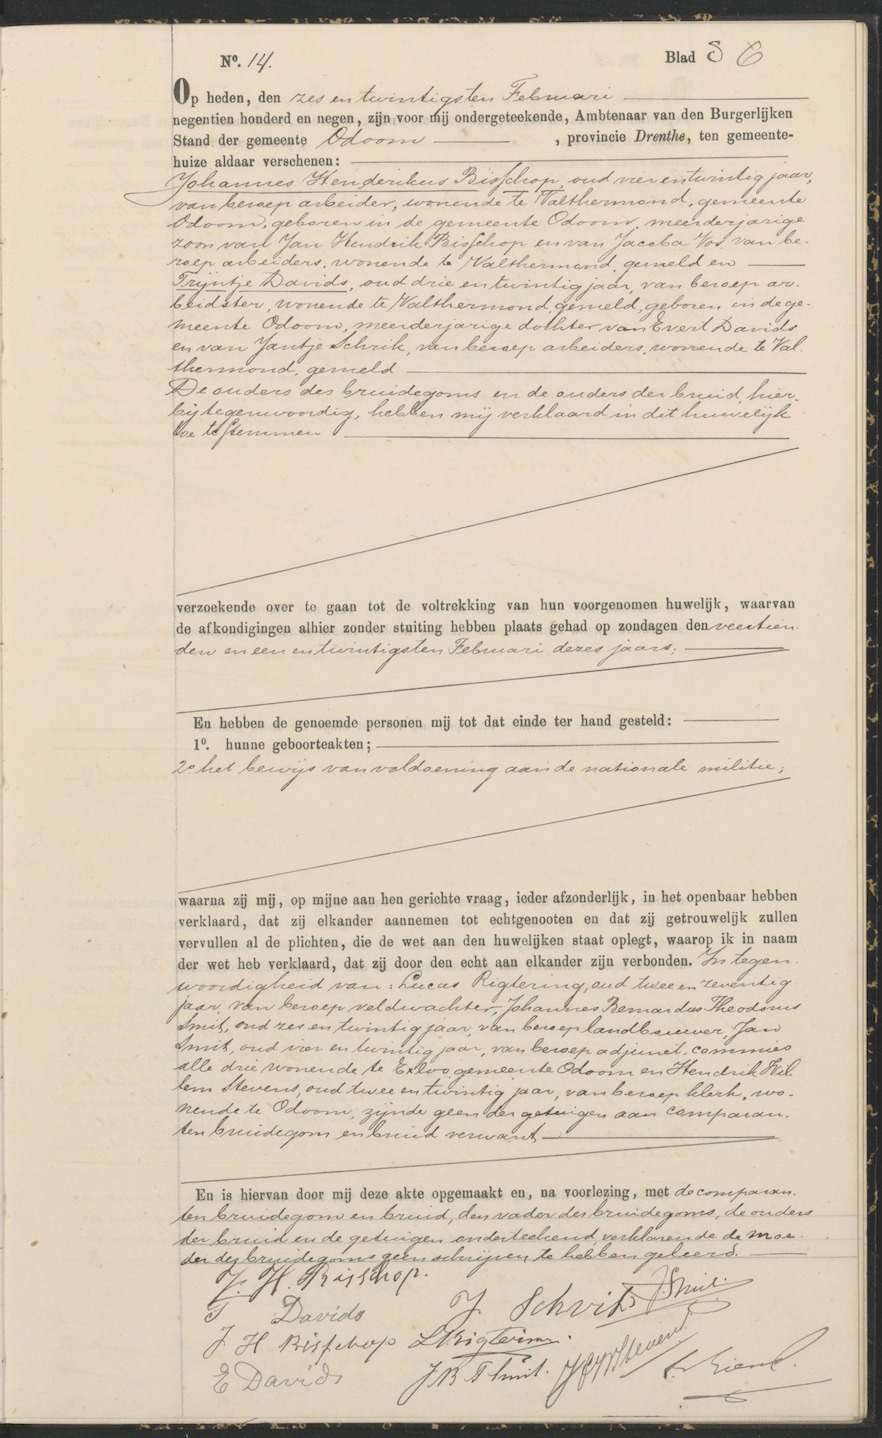 Nº. 14. Blad 8 C
Op heden, den zes en twintigsten Februari
negentien honderd en negen, zijn voor mij ondergeteekende, Ambtenaar van den Burgerlijken
Stand der gemeente Odoorn, provincie Drenthe, ten gemeente-
huize aldaar verschenen:
Johannes Henderikus Bisschop, oud vier en twintig jaar,
van beroep arbeider, wonende te Valthermond, gemeente
Odoorn, geboren in de gemeente Odoorn, meerderjarige
zoon van Jan Hendrik Bisschop en van Jacoba Vos, van be-
roep arbeiders, wonende te Valthermond, gemeld en
Trijntje Davids, oud drie en twintig jaar, van beroep ar-
beidster, wonende te Valthermond, gemeld, geboren in de ge-
meente Odoorn, meerderjarige dochter van Evert Davids
en van Jantje Schrik, van beroep arbeiders, wonende te Val
thermond, gemeld
De ouders des bruidegoms en de ouders der bruid, hier-
bij tegenwoordig, hebben mij verklaard in dit huwelijk
toe te stemmen
verzoekende over te gaan tot de voltrekking van hun voorgenomen huwelijk, waarvan
de afkondigingen alhier zonder stuiting hebben plaats gehad op zondagen den veertien-
den en een en twintigsten Februari dezes jaars;
En hebben de genoemde personen mij tot dat einde ter hand gesteld:
1º. hunne geboorteakten;
2º het bewijs van voldoening aan de nationale militie;
waarna zij mij, op mijne aan hen gerichte vraag, ieder afzonderlijk, in het openbaar hebben
verklaard, dat zij elkander aannemen tot echtgenooten en dat zij getrouwelijk zullen
vervullen al de plichten, die de wet aan den huwelijken staat oplegt, waarop ik in naam
der wet heb verklaard, dat zij door den echt aan elkander zijn verbonden. In tegen-
woordigheid van: Lucas Rigtering, oud twee en zeventig
jaar, van beroep veldwachter, Johannes Bernardus Theodorus
Smit, oud zes en twintig jaar, van beroep landbouwer, Jan
Smit, oud vier en twintig jaar, van beroep adjunct. commies
alle drie wonende te Exloo gemeente Odoorn en Hendrik Wil
lem Stevens, oud twee en twintig jaar, van beroep klerk, wo-
nende te Odoorn, zijnde geen der getuigen aan comparan-
ten bruidegom en bruid verwant
En is hiervan door mij deze akte opgemaakt en, na voorlezing, met de comparan-
ten bruidegom en bruid, den vader des bruidegoms, de ouders
der bruid en de getuigen onderteekend, verklarende de moe-
der des bruidegoms geen schrijven te hebben geleerd.
J. H. Bisschop.
T Davids J Schrik J Smit.
J H Bisschop L Rigtering.
E Davids J B T Smit. H W Stevens